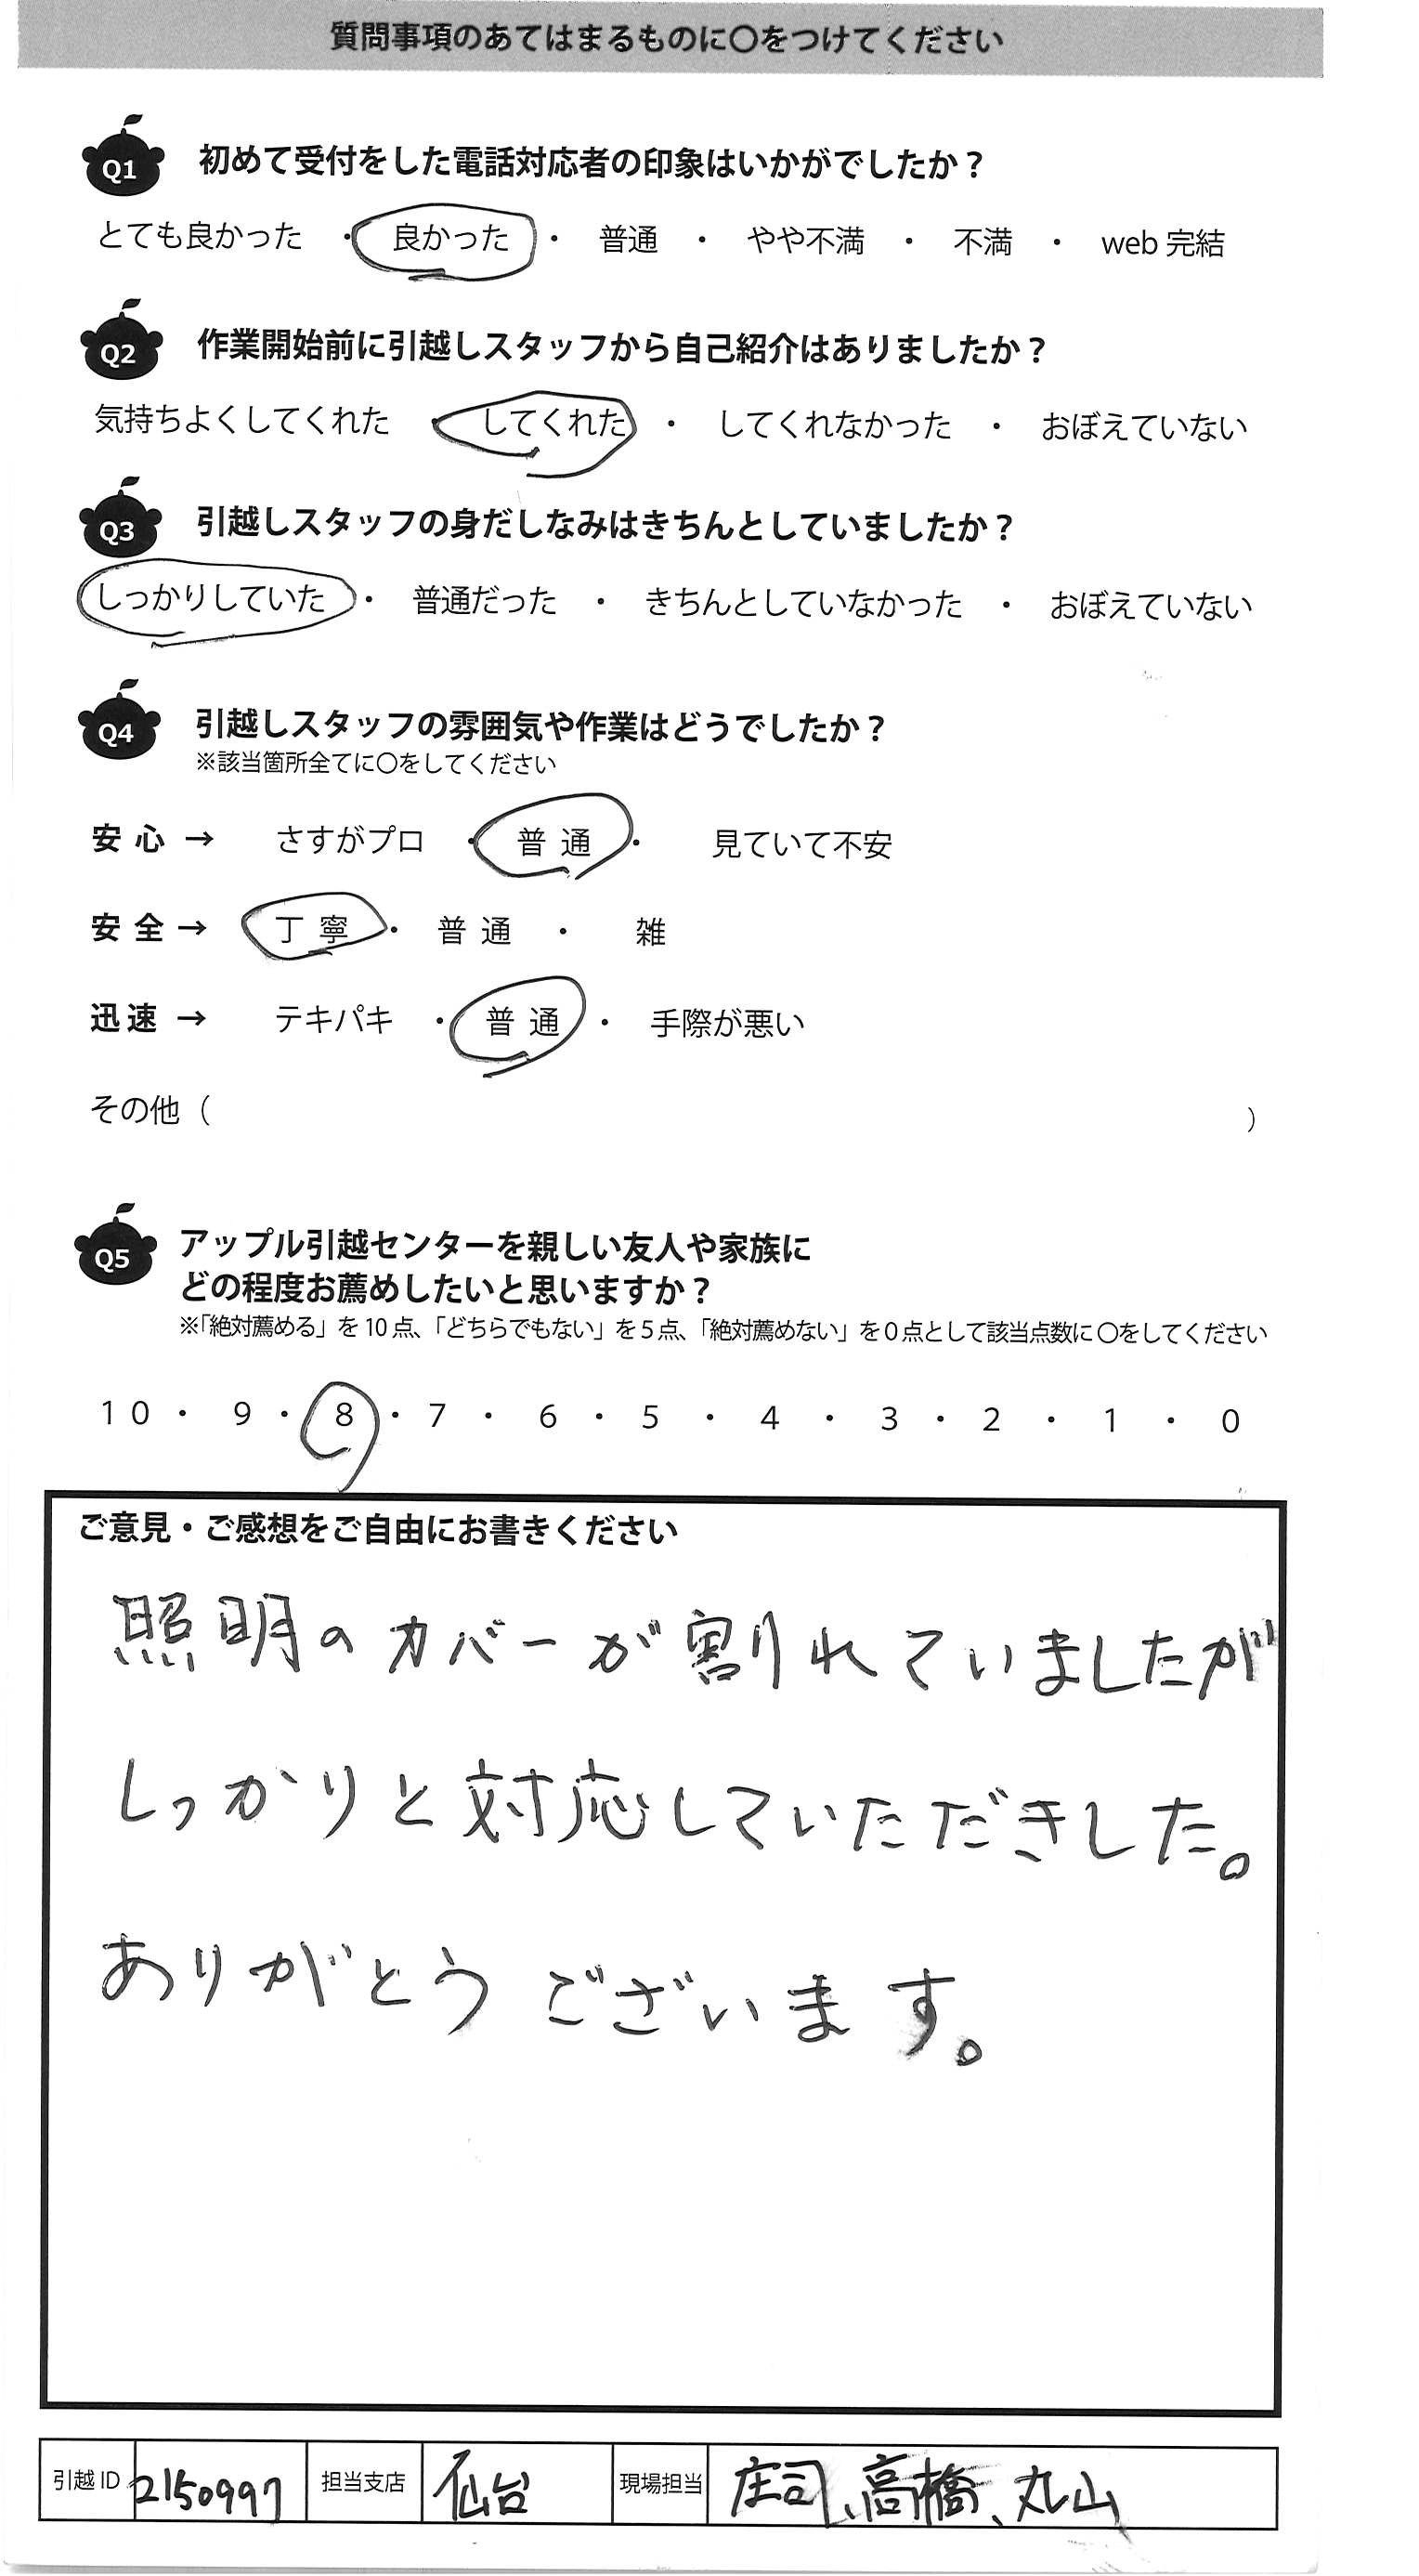 質問事項のあてはまるものに〇をつけてください
Q1 初めて受付をした電話対応者の印象はいかがでしたか？
とても良かった ・ 良かった ・ 普通 ・ やや不満 ・ 不満 ・ web 完結
Q2 作業開始前に引越しスタッフから自己紹介はありましたか？
気持ちよくしてくれた ・ してくれた ・ してくれなかった ・ おぼえていない
Q3 引越しスタッフの身だしなみはきちんとしていましたか？
しっかりしていた ・ 普通だった ・ きちんとしていなかった ・ おぼえていない
Q4 引越しスタッフの雰囲気や作業はどうでしたか？
※該当箇所全てに〇をしてください
安 心 → さすがプロ ・ 普 通 ・ 見ていて不安
安 全 → 丁 寧 ・ 普 通 ・ 雑
迅 速 → テキパキ ・ 普 通 ・ 手際が悪い
その他（ ）
Q5 アップル引越センターを親しい友人や家族に
どの程度お薦めしたいと思いますか？
※「絶対薦める」を 10 点、「どちらでもない」を 5 点、「絶対薦めない」を 0 点として該当点数に 〇をしてください
10 ・ 9 ・ 8 ・ 7 ・ 6 ・ 5 ・ 4 ・ 3 ・ 2 ・ 1 ・ 0
ご意見・ご感想をご自由にお書きください
照明のカバーが割れていましたが
しっかりと対応していただきした。
ありがとうございます。
引越 ID 2150997 担当支店 仙台 現場担当 庄司、高橋、丸山